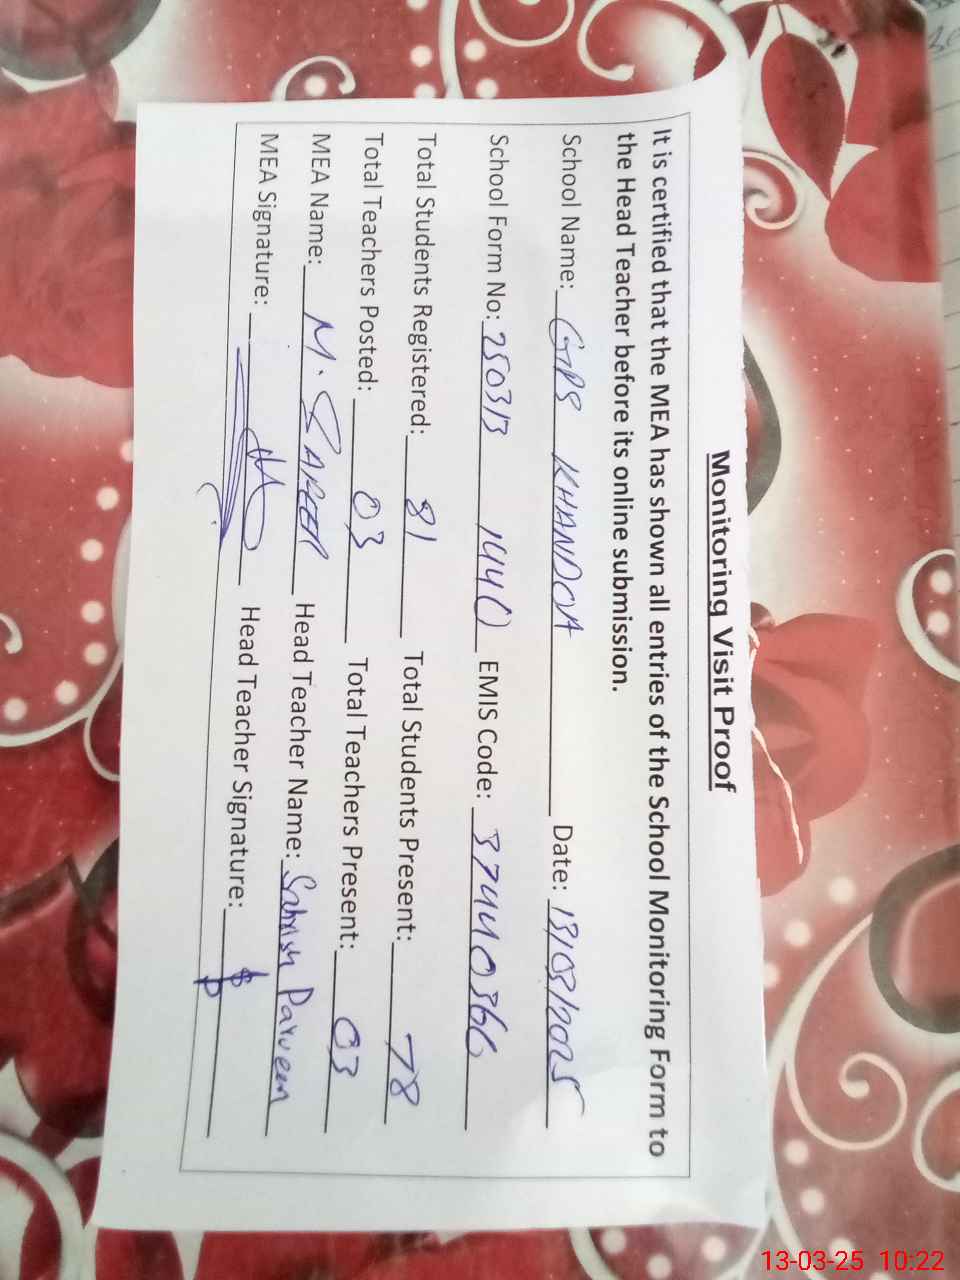 Monitoring Visit Proof
It is certified that the MEA has shown all entries of the School Monitoring Form to
the Head Teacher before its online submission.
School Name: GPS KHANDOA Date: 13/03/2025
School Form No: 250313 1440 EMIS Code: 37440366
Total Students Registered: 81 Total Students Present: 78
Total Teachers Posted: 03 Total Teachers Present: 03
MEA Name: M. Head Teacher Name: Parveen
MEA Signature: Head Teacher Signature:
13-03-25 10:22